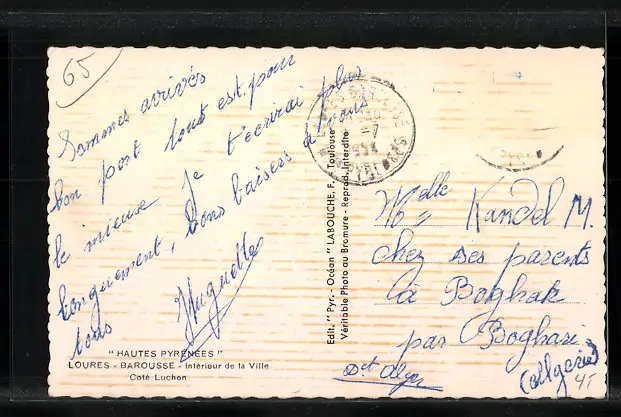 65
Sommes arrivés
bon port tout est pour
le mieux je t'ecrirai plus
longuement, bons baisers à vous
tous
Huguette
"HAUTES PYRÉNÉES"
LOURES - BAROUSSE - Intérieur de la Ville
Coté Luchon
Edit. "Pyr. - Océan" LABOUCHE, F. Toulouse
Véritable Photo au Bromure - Reprod. Interdite
Melle Kandel M.
chez ses parents
à Boghar
par Boghari
Dt Alger (Algerie)